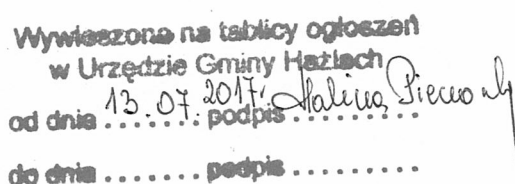 Wywieszono na tablicy ogłoszeń
w Urzędzie Gminy Hażlach
od dnia 13.07.2017r. podpis Halina
do dnia ........ podpis ..........